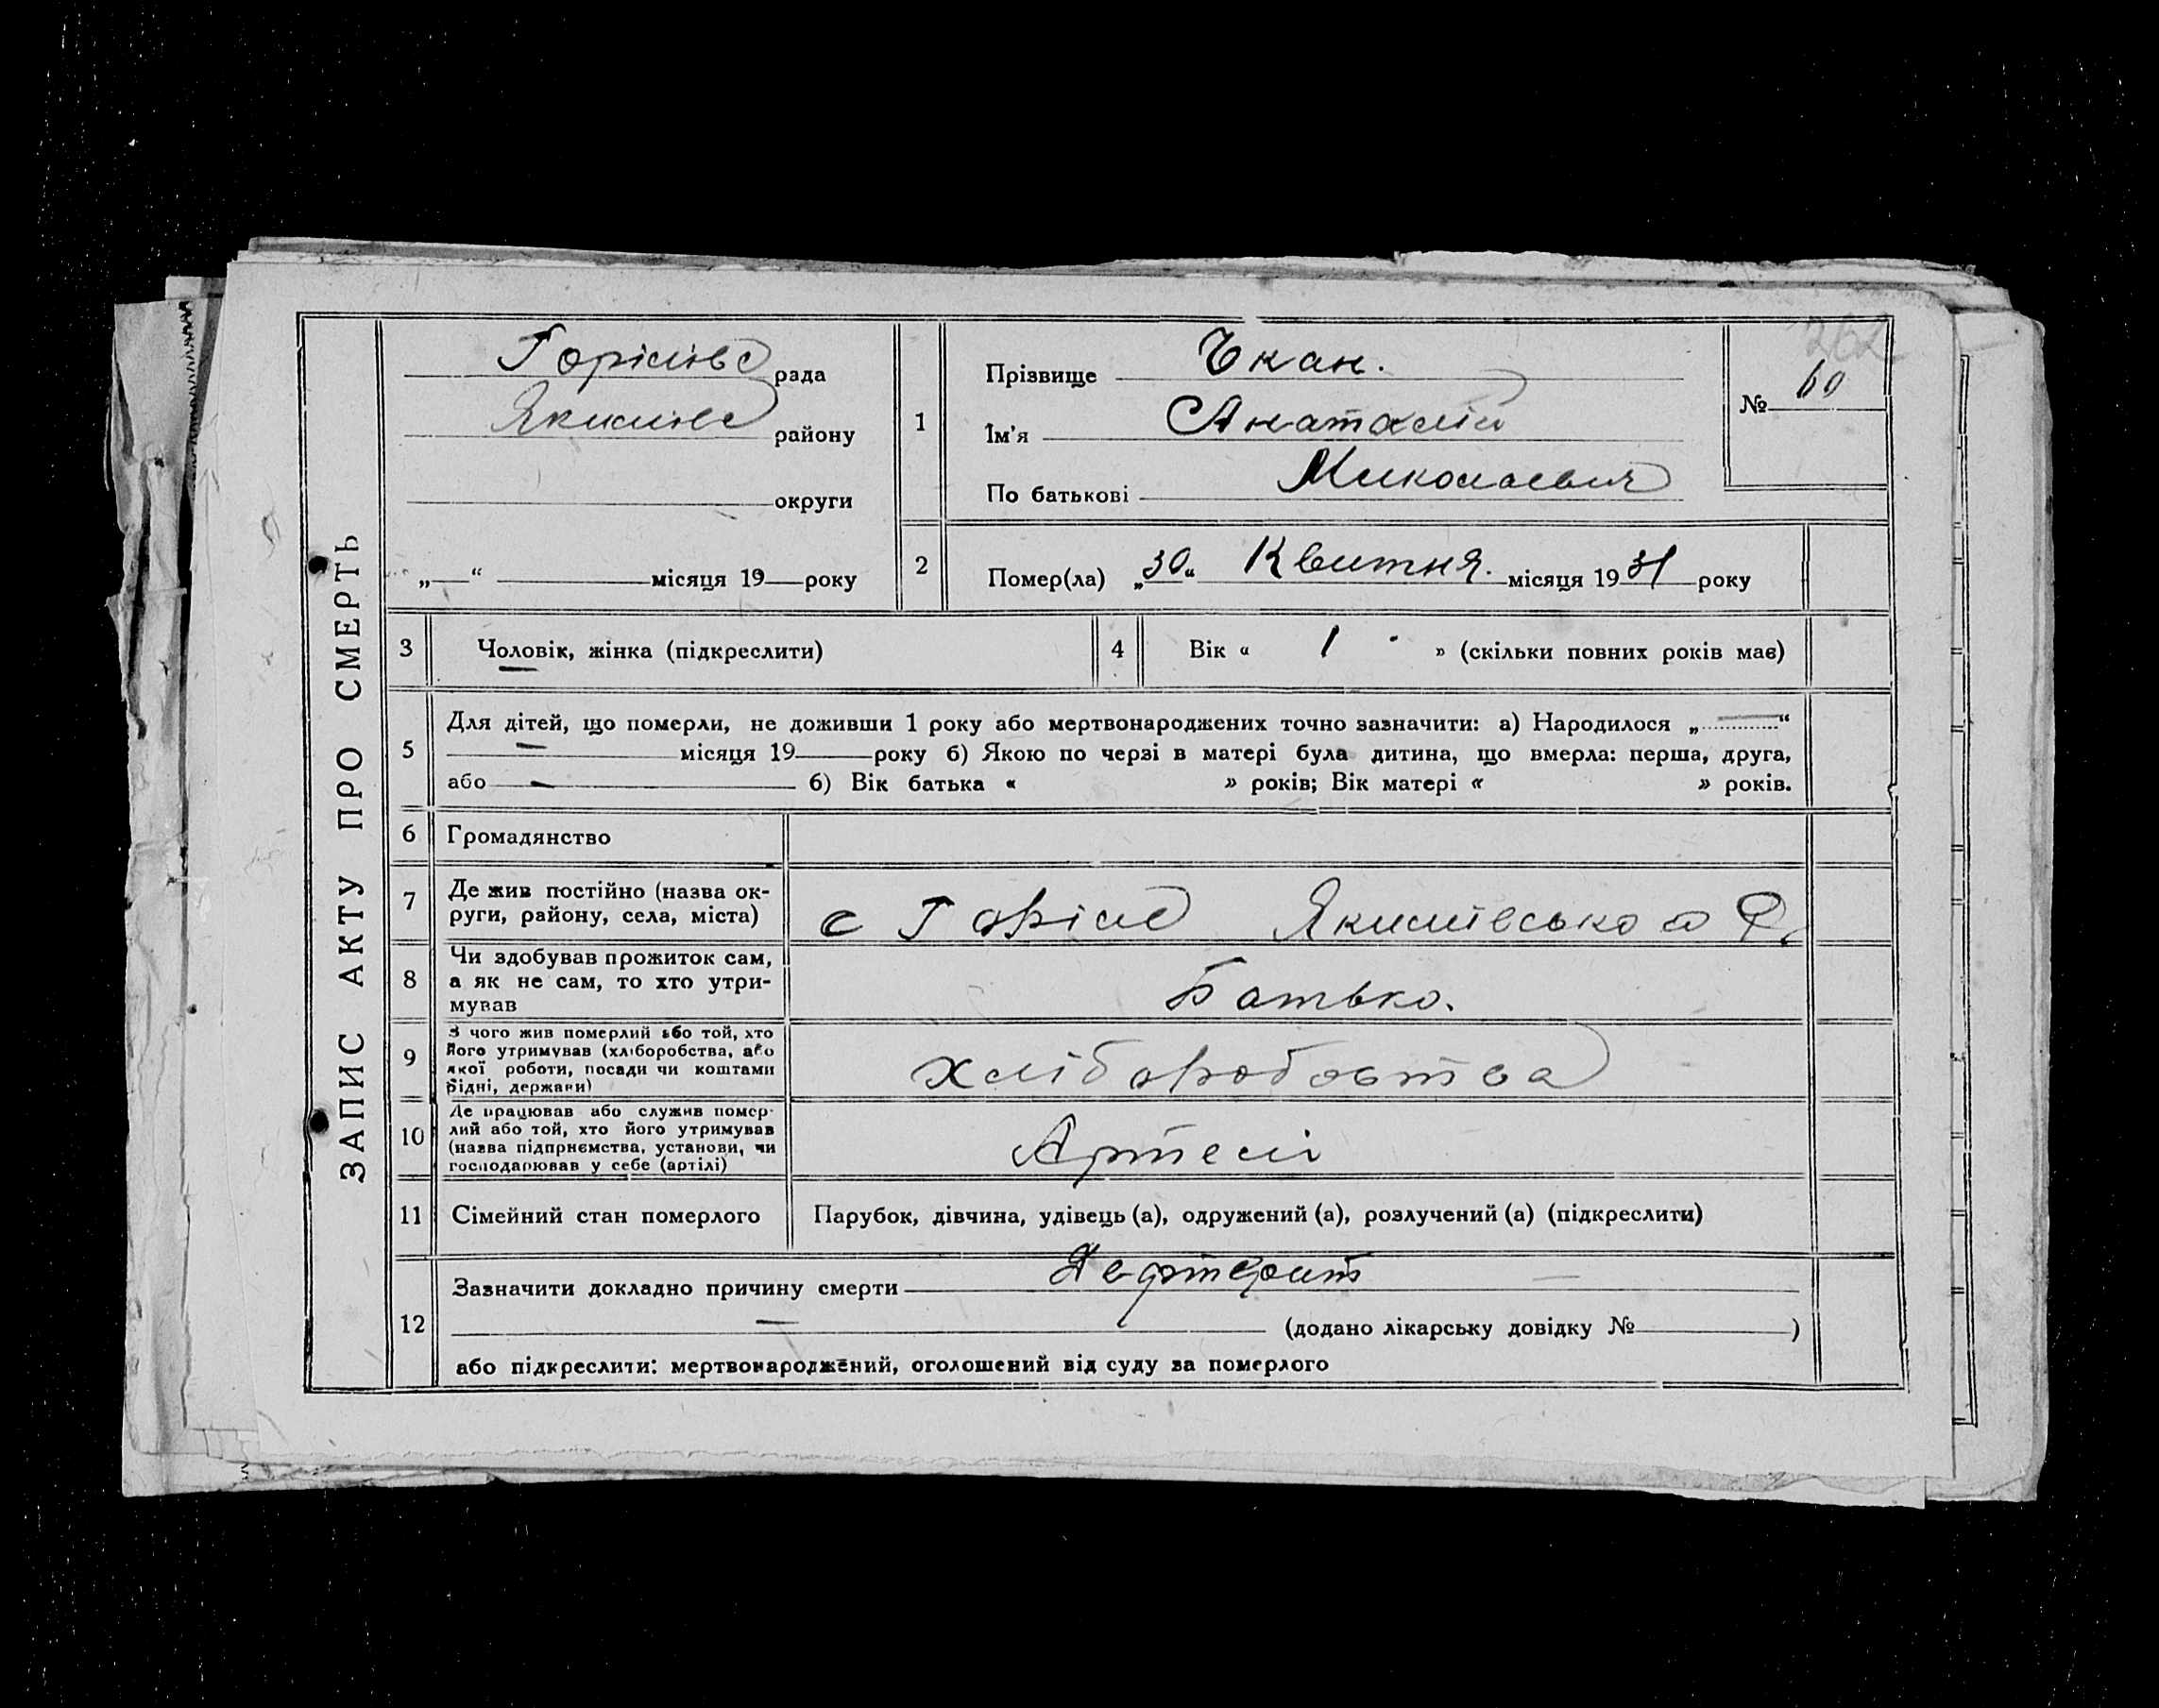 ЗАПИС АКТУ ПРО СМЕРТЬ
262
Горілівс рада
Якимівс району
округи
„—“ місяця 19 року
1
Прізвище Чкан.
Ім'я Анаталій
По батькові Миколаевич
№ 60
2
Помер(ла) „30“ Квитня. місяця 1931 року
3 Чоловік, жінка (підкреслити)
4 Вік « 1 » (скільки повних років має)
5 Для дітей, що померли, не доживши 1 року або мертвонароджених точно зазначити: а) Народилося „ “
місяця 19 року б) Якою по черзі в матері була дитина, що вмерла: перша, друга,
або б) Вік батька « » років; Вік матері « » років.
6 Громадянство
7 Де жив постійно (назва ок-
руги, району, села, міста)
с Горіле Якимівсько о Р.
8 Чи здобував прожиток сам,
а як не сам, то хто утри-
мував
Батько.
9 З чого жив померлий або той, хто
його утримував (хліборобства, або
якої роботи, посади чи коштами
рідні, держави)
хліборобоства
10 Де працював або служив помер-
лий або той, хто його утримував
(назва підприємства, установи, чи
господарював у себе (артілі)
Артелі
11 Сімейний стан померлого
Парубок, дівчина, удівець (а), одружений (а), розлучений (а) (підкреслити)
12 Зазначити докладно причину смерти Дефтерит
(додано лікарську довідку № )
або підкреслити: мертвонароджений, оголошений від суду за померлого